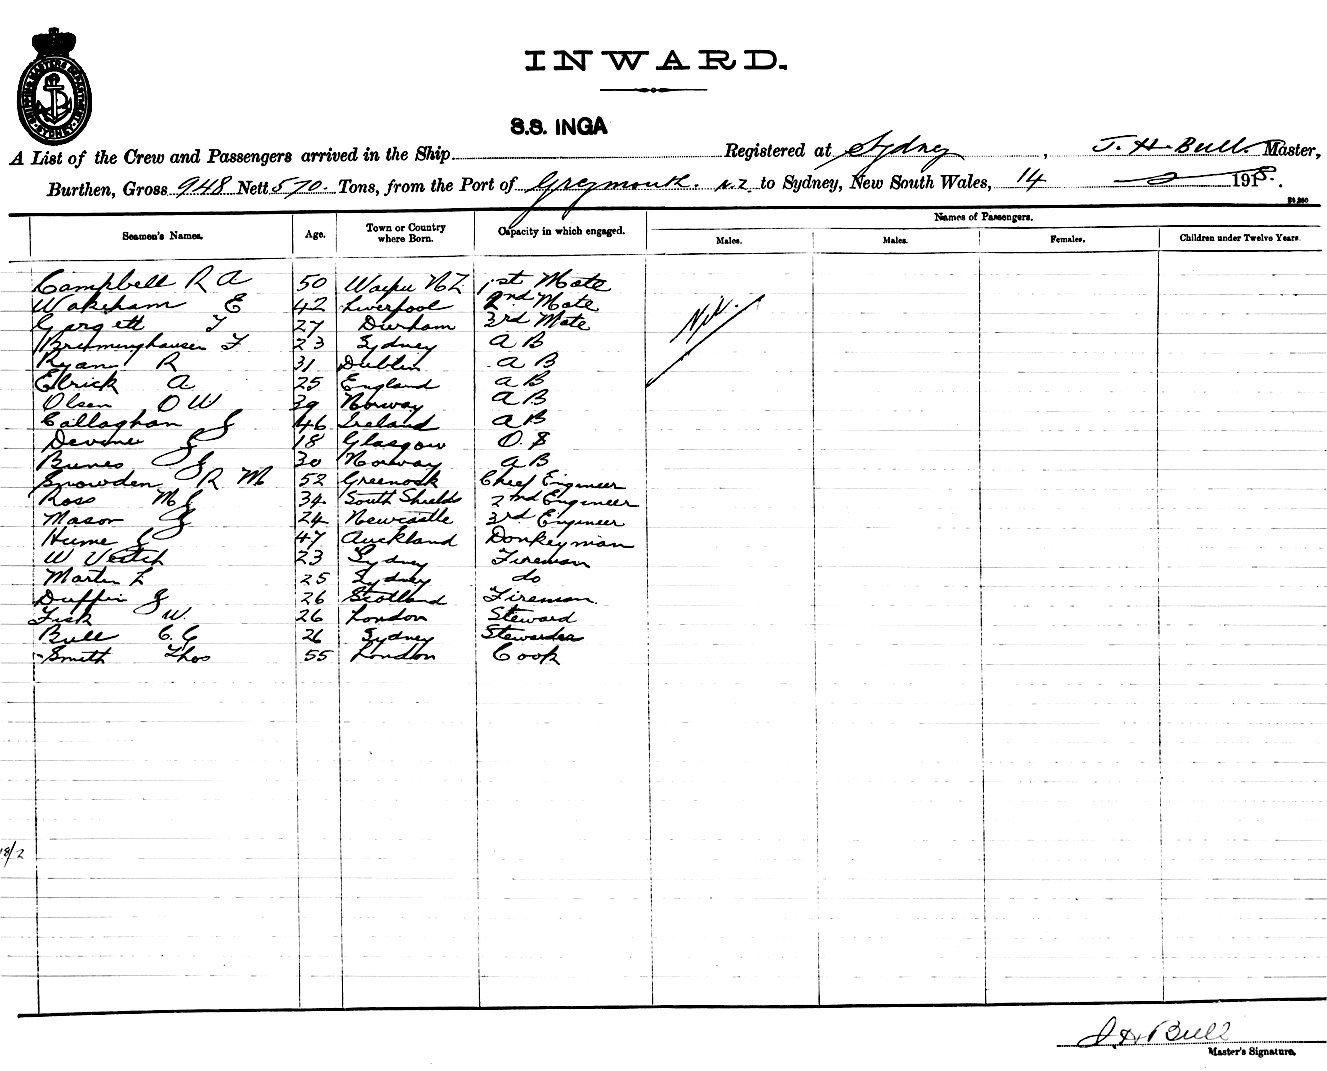 SHIPPING MASTERS DEPARTMENT
SYDNEY
INWARD.
S.S. INGA
A List of the Crew and Passengers arrived in the Ship Registered at Sydney, J. H. Bull Master,
Burthen, Gross 948 Nett 570. Tons, from the Port of Greymouth. N.Z. to Sydney, New South Wales, 14 2 1918.
Seamen's Names. Age. Town or Country where Born. Capacity in which engaged. Names of Passengers.
Males. Males. Females. Children under Twelve Years.
Campbell R A 50 Waipu NZ 1st Mate
Wakeham E 42 Liverpool 2nd Mate
Gargett T 27 Durham 3rd Mate
Nil.
Birminghausen F 23 Sydney A B
Ryan R 31 Dublin A B
Elrick A 25 England A B
Olsen O W 39 Norway A B
Callaghan J 46 Ireland A B
Devine J 18 Glasgow O. S
J 30 Norway A B
Snowden R M 52 Greenock Chief Engineer
Ross M J 34 South Shields 2nd Engineer
Mason J 24 Newcastle 3rd Engineer
Hume J 47 Auckland Donkeyman
W Veitch 23 Sydney Fireman
Martin L 25 Sydney do
Duffin J 26 Scotland Fireman.
Fisk W. 26 London Steward
Bull C. C 26 Sydney Stewardess
Smith Thos 55 London Cook
18/2
J. H. Bull
Master's Signature.